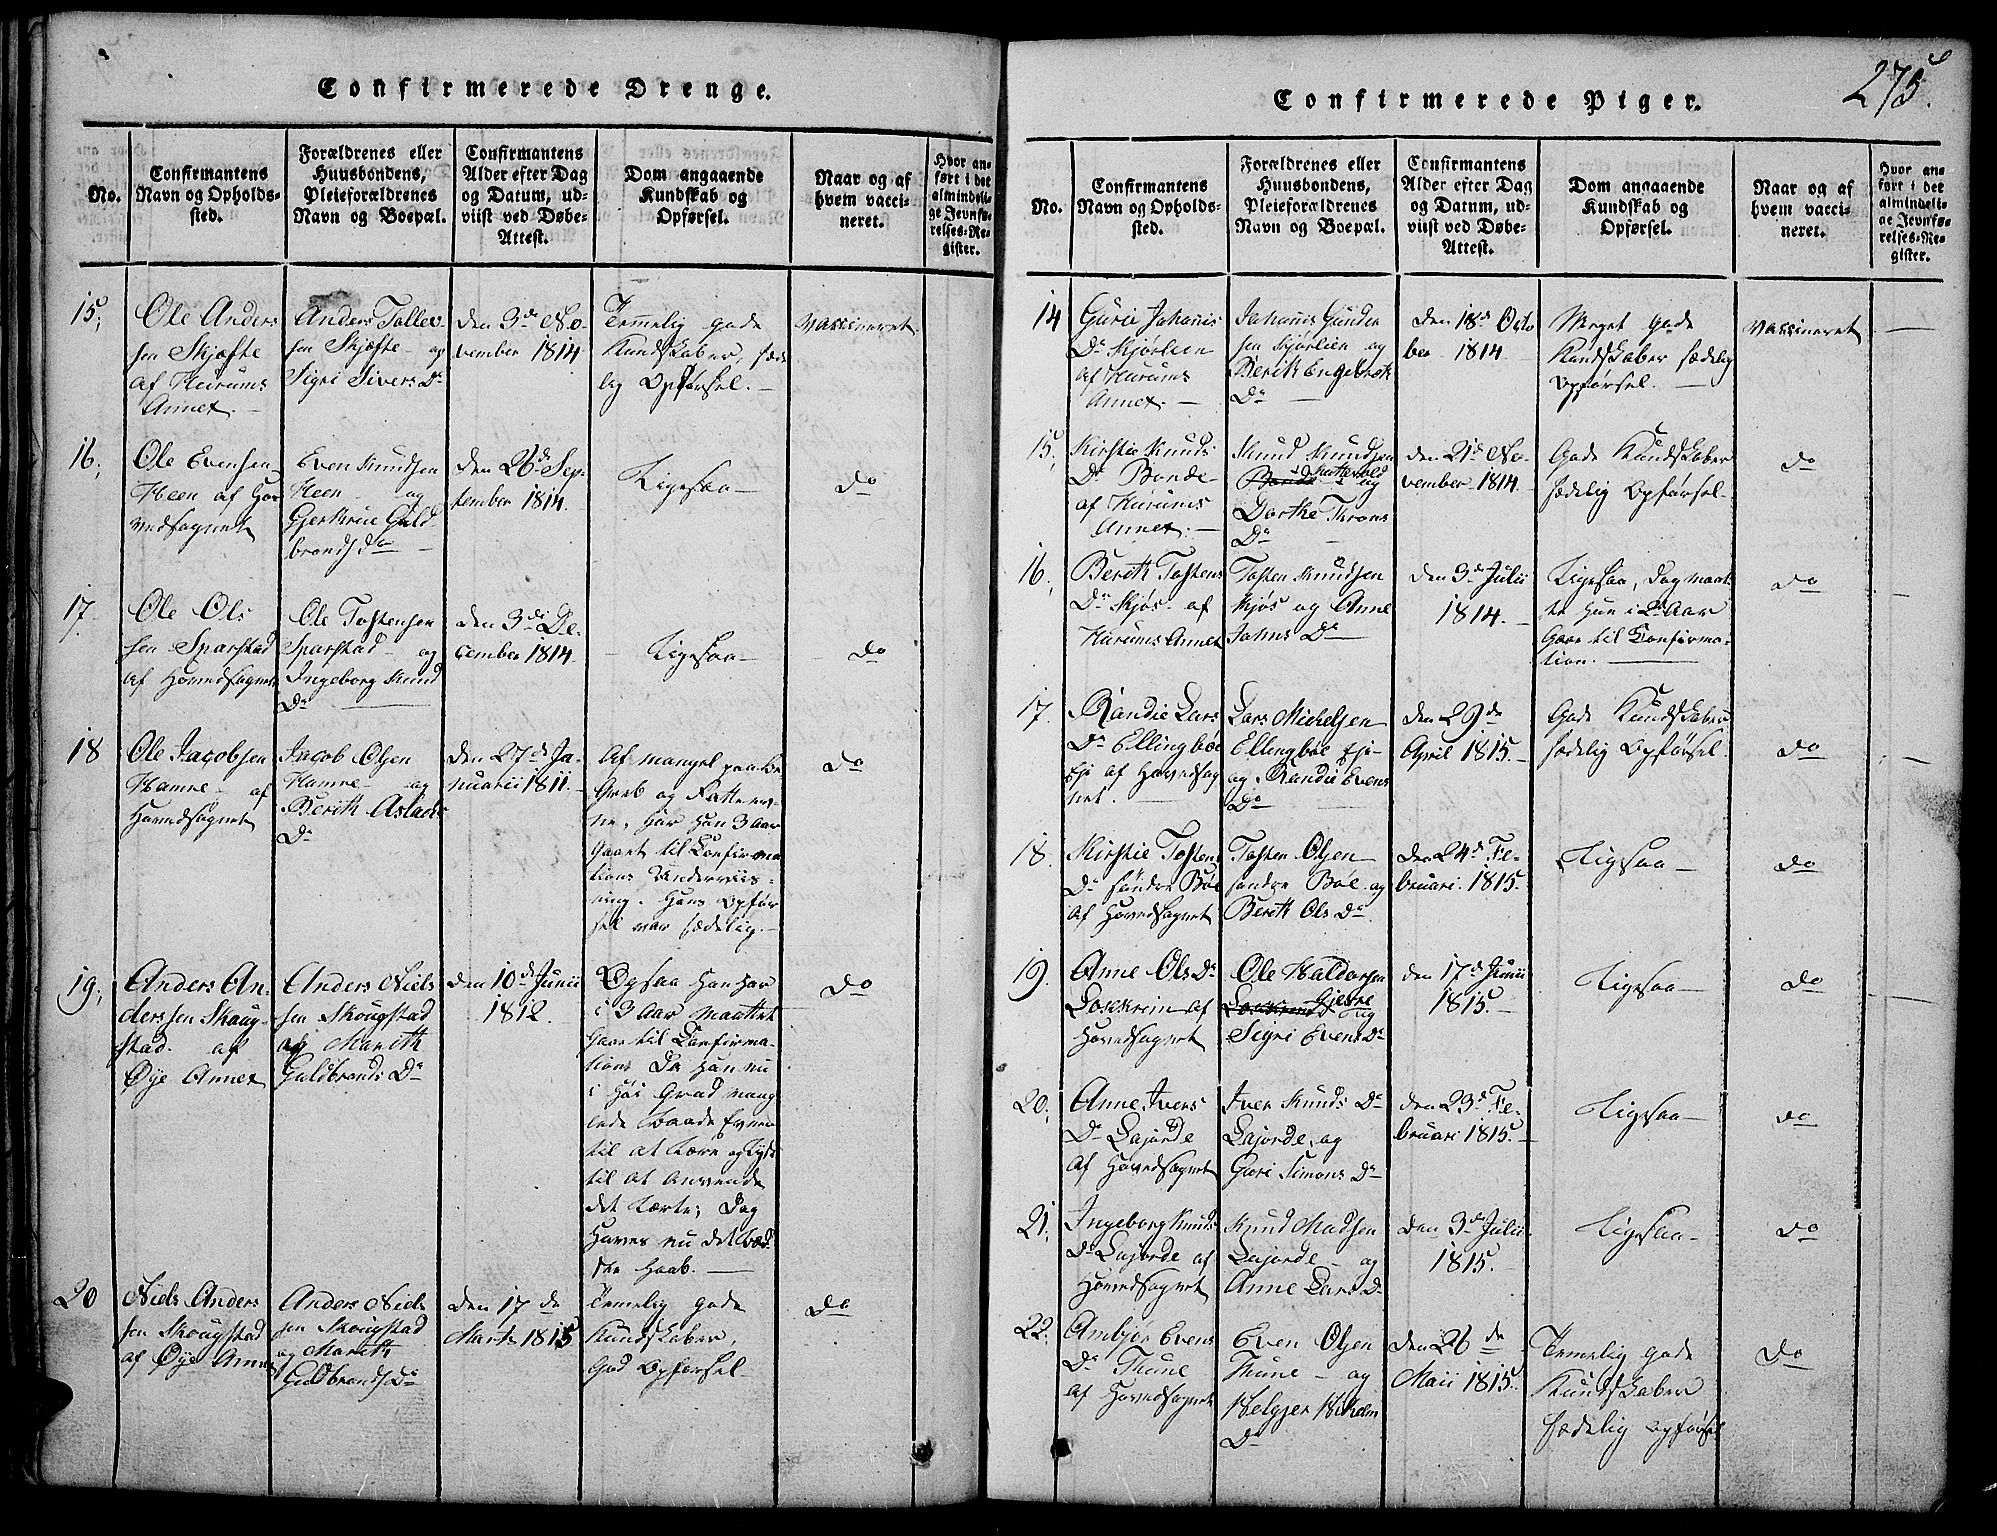 Confirmerede Drenge.
No.
Confirmantens
Navn og Opholds-
sted.
Forældrenes eller
Huusbondens,
Pleieforældrenes
Navn og Boepæl.
Confirmantens
Alder efter Dag
og Datum, ud-
viist ved Døbe-
Attest.
Dom angaaende
Kundskab og
Opførsel.
Naar og af
hvem vacci-
neret.
Hvor an-
ført i det
almindeli-
ge Jevnfø-
relses-Re-
gister.
15,
Ole Anders
sen Skjefte
af Hurums
Annex.
Anders Tollev-
sen Skjefte og
Sigri Sivers Dr
Den 3de No-
vember 1814
Temmelig gode
Kundskaber, sæde
lig Opførsel.
vaccineret
16,
Ole Evensen
Heen af Ho-
vedsognet
Even Knudsen
Heen og
Gjertrue Guld
brands dr
Den 26de Sep-
tember 1814.
Ligesaa
do
17.
Ole Ols
sen Sparstad
af Hovedsognet
Ole Tostensen
Sparstad og
Ingeborg Knud
Dr
Den 3de De-
cember 1814.
Ligesaa
do
18
Ole Jacobsen
Hamre af
Hovedsognet
Jacob Olsen
Hamre og
Berith Aslaks
Dr
Den 27de Ja-
nuarii 1811.
Af mangel paa Be
Greb og Fatteev-
ne, har han 3 Aar
Gaaet til Confirma
tions Underviis-
ning. Hans Opfør
sel var sædelig.
do
19,
Anders An-
derssen Skoug-
stad af
Øye Annex
Anders Niels
sen Skougstad
og Marith
Guldbrands Dr
Den 10de Junii
1812
Ogsaa han har
i 3 Aar maattet
Gaae til Confirma-
tions Da han nu
i Høi Grad mang
lede baade Evne
til at Lære og Lyst
til at Anvende
det Lærte; Dog
Haves nu det bed
ste Haab.
do
20
Niels Anders
sen Skougstad
af Øye Annex
Anders Niels
sen Skougstad
og Marith
Guldbrands Dr
Den 17de
Marts 1815
Temelig gode
Kundskaber,
God Opførsel
do
275.
Confirmerede Piger.
No.
Confirmantens
Navn og Opholds-
sted.
Forældrenes eller
Huusbondens,
Pleieforældrenes
Navn og Boepæl.
Confirmantens
Alder efter Dag
og Datum, ud-
viist ved Døbe-
Attest.
Dom angaaende
Kundskab og
Opførsel.
Naar og af
hvem vacci-
neret.
Hvor an-
ført i det
almindeli-
ge Jevnfø-
relses-Re-
gister.
14
Gurie Johanis
Dr Kjørlien
af Hurums
Annex.
Johanis Gunder
sen Kjørlien og
Berith Engebreth
Dr
Den 18de Octo
ber 1814.
Meget gode
Kundskaber sædelig
Opførsel.
vaccineret
15,
Kirstie Knuds
Dr Bonde
af Hurums
Annex.
Knud Knudsen
og
Dorthe Throns
Dr
Den 21de No-
vember 1814
Gode Kundskaber
sædelig Opførsel
do
16,
Berith Tostens
Dr Kjøs af
Hurums Annex
Tosten Knudsen
Kjøs og Anne
Johns Dr
Den 3de Julii
1814.
Ligesaa, Dog maat
te hun i 2 Aar
Gaae til Confirma-
tion.
do
17.
Randie Lars
Dr Ellingbøe
Eje af Hovedsog
net.
Lars Michelsen
Ellingbøe Eje
og Randie Evens
Dr
Den 29de
April 1815.
Gode Kundskaber
sædelig Opførsel
do
18.
Kirstie Tostens
Dr søndre Bøe
af Hovedsognet
Tosten Olsen
søndre Bøe og
Berith Ols Dr
Den 24de Fe-
bruari. 1815.
Ligesaa
do
19.
Anne Ols Dr
af
Hovedsognet
Ole Haldorsen
og
Sigri Evens Dr
Den 17de Junii
1815.
Ligesaa
do
20,
Anne Ivers
Dr Lajorde
af Hovedsognet
Iver Knuds Dr
Lajorde, og
Guri Simons Dr
Den 23de Fe-
bruari 1815.
Ligesaa
do
21,
Ingeborg Knuds
Dr Lajorde af
Hovedsognet
Knud Madsen
Lajorde og
Anne Lars Dr
Den 3de Julii
1815.
Ligesaa
do
22.
Ambjør Evens
Dr Thune
af Hovedsognet
Even Olsen
Thune og
Dr
Den 26de
Maii 1815.
Temelig gode
Kundskaber
sædelig Opførsel
do